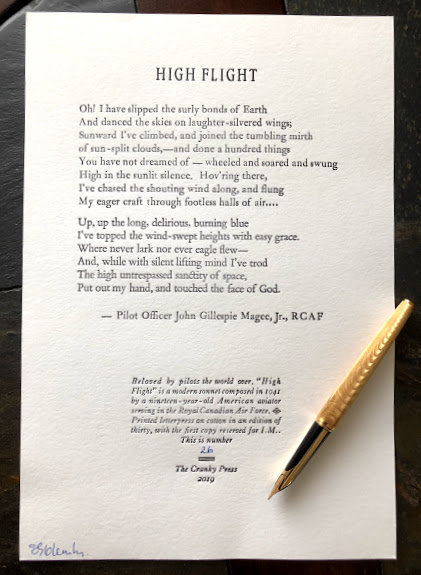 HIGH FLIGHT
Oh! I have slipped the surly bonds of Earth
And danced the skies on laughter-silvered wings;
Sunward I've climbed, and joined the tumbling mirth
of sun-split clouds,—and done a hundred things
You have not dreamed of — wheeled and soared and swung
High in the sunlit silence. Hov'ring there,
I've chased the shouting wind along, and flung
My eager craft through footless halls of air....
Up, up the long, delirious, burning blue
I've topped the wind-swept heights with easy grace.
Where never lark nor ever eagle flew—
And, while with silent lifting mind I've trod
The high untrespassed sanctity of space,
Put out my hand, and touched the face of God.
— Pilot Officer John Gillespie Magee, Jr., RCAF
Beloved by pilots the world over, "High
Flight" is a modern sonnet composed in 1941
by a nineteen-year-old American aviator
serving in the Royal Canadian Air Force.
Printed letterpress on cotton in an edition of
thirty, with the first copy reserved for I.M..
This is number
26
The Cranky Press
2019